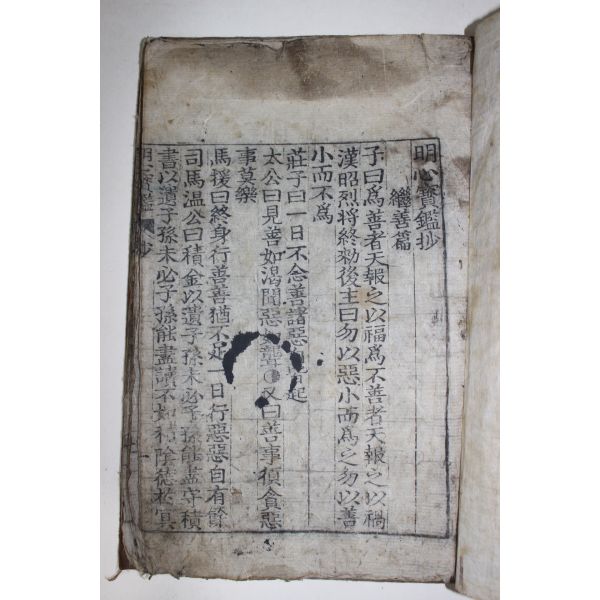 明心寶鑑抄
繼善篇
子曰爲善者天報之以福爲不善者天報之以禍
漢昭烈將終勑後主曰勿以惡小而爲之勿以善
小而不爲
莊子曰一日不念善諸惡皆起
太公曰見善如渴聞惡聾又曰善事須貪惡
事莫樂
馬援曰終身行善善猶不足一日行惡惡自有餘
司馬溫公曰積金以遺子孫未必子孫能盡守積
書以遺子孫未必子孫能盡讀不如積陰德於冥
明心寶鑑 抄